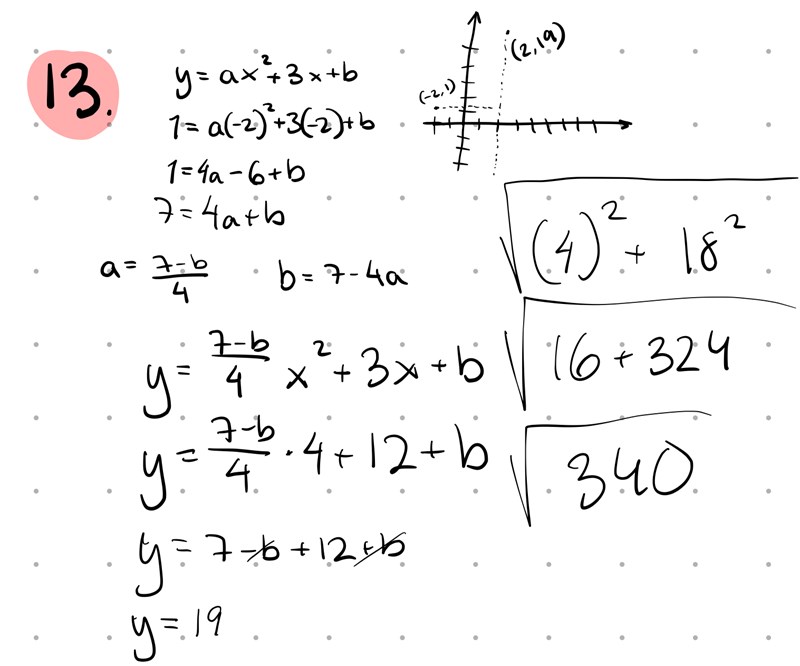 13.
y = ax² + 3x + b
1 = a(-2)² + 3(-2) + b
1 = 4a - 6 + b
7 = 4a + b
a = (7-b)/4   b = 7 - 4a
y = (7-b)/4 x² + 3x + b
y = (7-b)/4 · 4 + 12 + b
y = 7 - b + 12 + b
y = 19
(2,19)
(-2,1)
√((4)² + 18²)
√(16 + 324)
√340